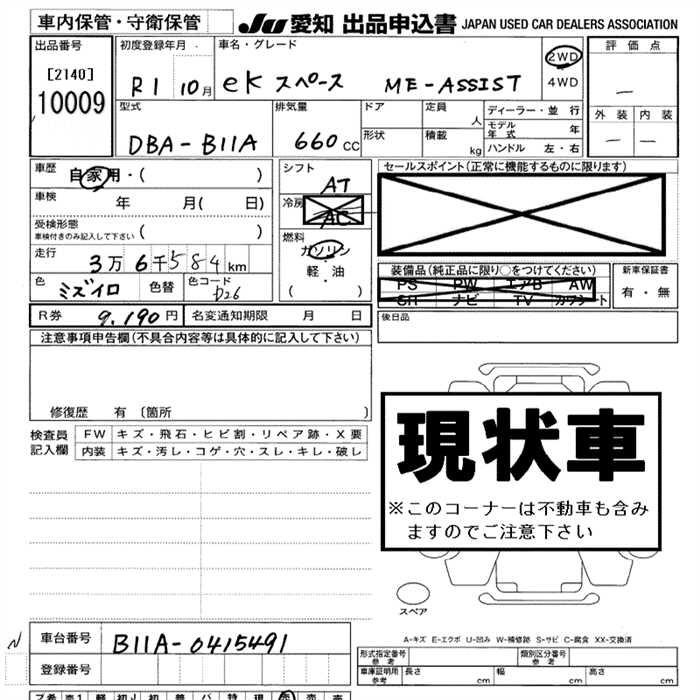 車内保管・守衛保管
JU 愛知 出品申込書 JAPAN USED CAR DEALERS ASSOCIATION
出品番号 初度登録年月 車名・グレード 2WD 評価点
[2140] R1 10月 eK スペース ME-ASSIST 4WD —
10009 外装 内装
型式 排気量 ドア 定員 人 ディーラー・並行
モデル年式 年
DBA-B11A 660cc 形状 積載 kg ハンドル 左・右 — —
車歴 自家用・( ) シフト AT セールスポイント(正常に機能するものに限ります)
車検 年 月( 日) 冷房 AC
受検形態
車検付きのみ記入して下さい ( ) 燃料 ガソリン
走行 3万6千584km 軽・油 装備品(純正品に限り○をつけてください) 新車保証書
色 ミズイロ 色替 色コード D26 ( ) PS PW エアB AW 有・無
SR ナビ TV カワシート
R券 9,190円 名変通知期限 月 日 後日品
注意事項申告欄(不具合内容等は具体的に記入して下さい)
修復歴 有 〔箇所 〕
現状車
※このコーナーは不動車も含み
ますのでご注意下さい
検査員 FW キズ・飛石・ヒビ割・リペア跡・X要
記入欄 内装 キズ・汚レ・コゲ・穴・スレ・キレ・破レ
スペア
A-キズ E-エクボ U-凹み W-補修跡 S-サビ C-腐食 XX-交換済
N 車台番号 B11A-0415491
登録番号
形式指定番号 参考 類別区分番号 参考
車庫証明用 参考 長さ cm 幅 cm 高さ cm